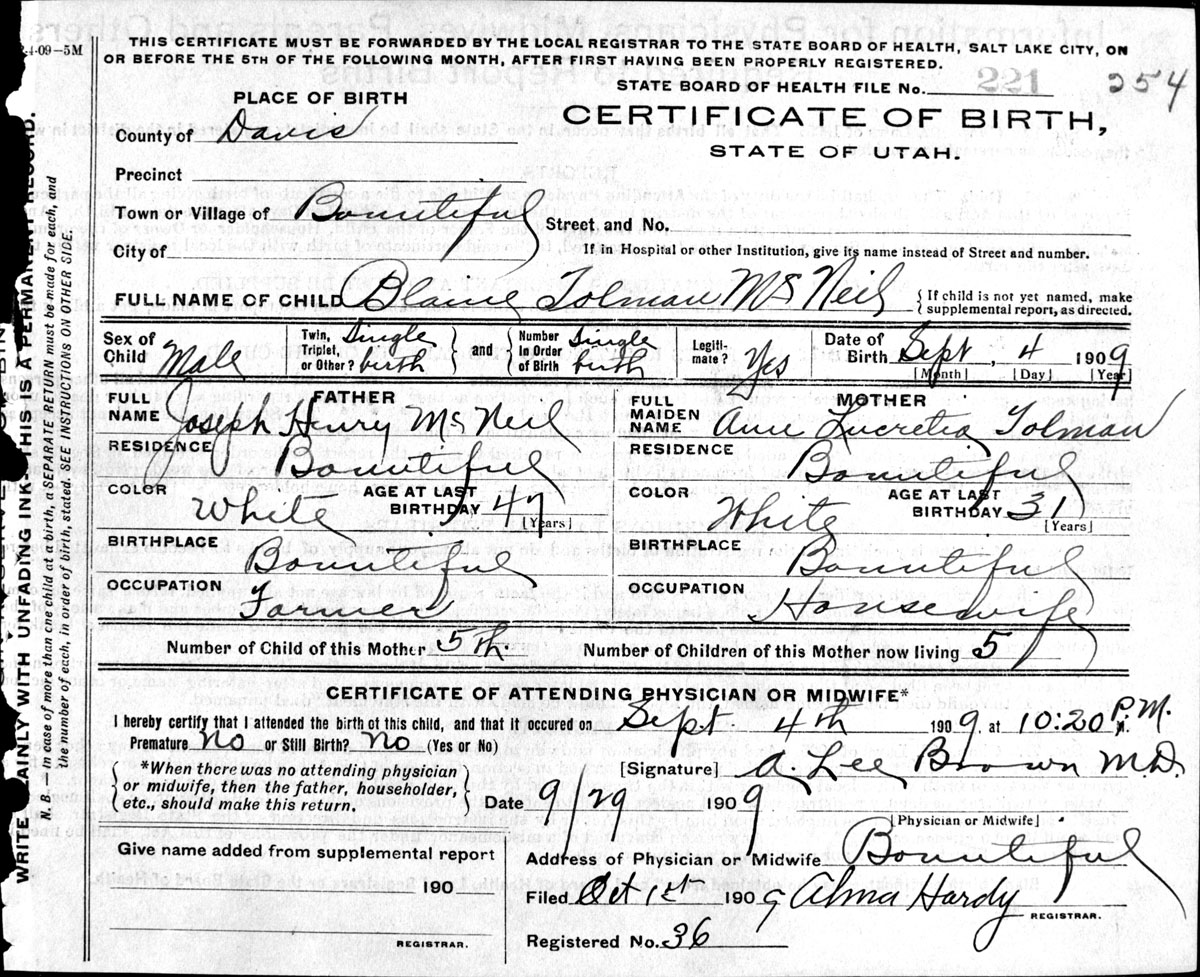 4-09-5M
THIS CERTIFICATE MUST BE FORWARDED BY THE LOCAL REGISTRAR TO THE STATE BOARD OF HEALTH, SALT LAKE CITY, ON
OR BEFORE THE 5TH OF THE FOLLOWING MONTH, AFTER FIRST HAVING BEEN PROPERLY REGISTERED.
STATE BOARD OF HEALTH FILE No. 221 254
PLACE OF BIRTH
CERTIFICATE OF BIRTH,
STATE OF UTAH.
County of Davis
Precinct
Town or Village of Bountiful Street and No.
City of If in Hospital or other Institution, give its name instead of Street and number.
FULL NAME OF CHILD Blaine Tolman McNeil { If child is not yet named, make supplemental report, as directed.
Sex of Child Male Twin, Triplet, or Other? Single birth } and { Number In Order of Birth Single birth Legitimate? Yes Date of Birth Sept 4 1909
[Month] [Day] [Year]
FATHER
FULL NAME Joseph Henry McNeil
MOTHER
FULL MAIDEN NAME Ann Lucretia Tolman
RESIDENCE Bountiful RESIDENCE Bountiful
COLOR White AGE AT LAST BIRTHDAY 47 [Years] COLOR White AGE AT LAST BIRTHDAY 31 [Years]
BIRTHPLACE Bountiful BIRTHPLACE Bountiful
OCCUPATION Farmer OCCUPATION Housewife
Number of Child of this Mother 5th. Number of Children of this Mother now living 5
CERTIFICATE OF ATTENDING PHYSICIAN OR MIDWIFE*
I hereby certify that I attended the birth of this child, and that it occured on Sept 4th 1909, at 10:20 P.M.
Premature No or Still Birth? No (Yes or No)
[Signature] A. Lee Brown M.D.
{ *When there was no attending physician
or midwife, then the father, householder,
etc., should make this return. }
Date 9/29 1909
[Physician or Midwife]
Give name added from supplemental report
Address of Physician or Midwife Bountiful
190
Filed Oct 1st 1909 Alma Hardy
REGISTRAR.
Registered No. 36
REGISTRAR.
WRITE PLAINLY WITH UNFADING INK-THIS IS A PERMANENT RECORD.
N. B. — In case of more than one child at a birth, a SEPARATE RETURN must be made for each, and
the number of each, in order of birth, stated. SEE INSTRUCTIONS ON OTHER SIDE.